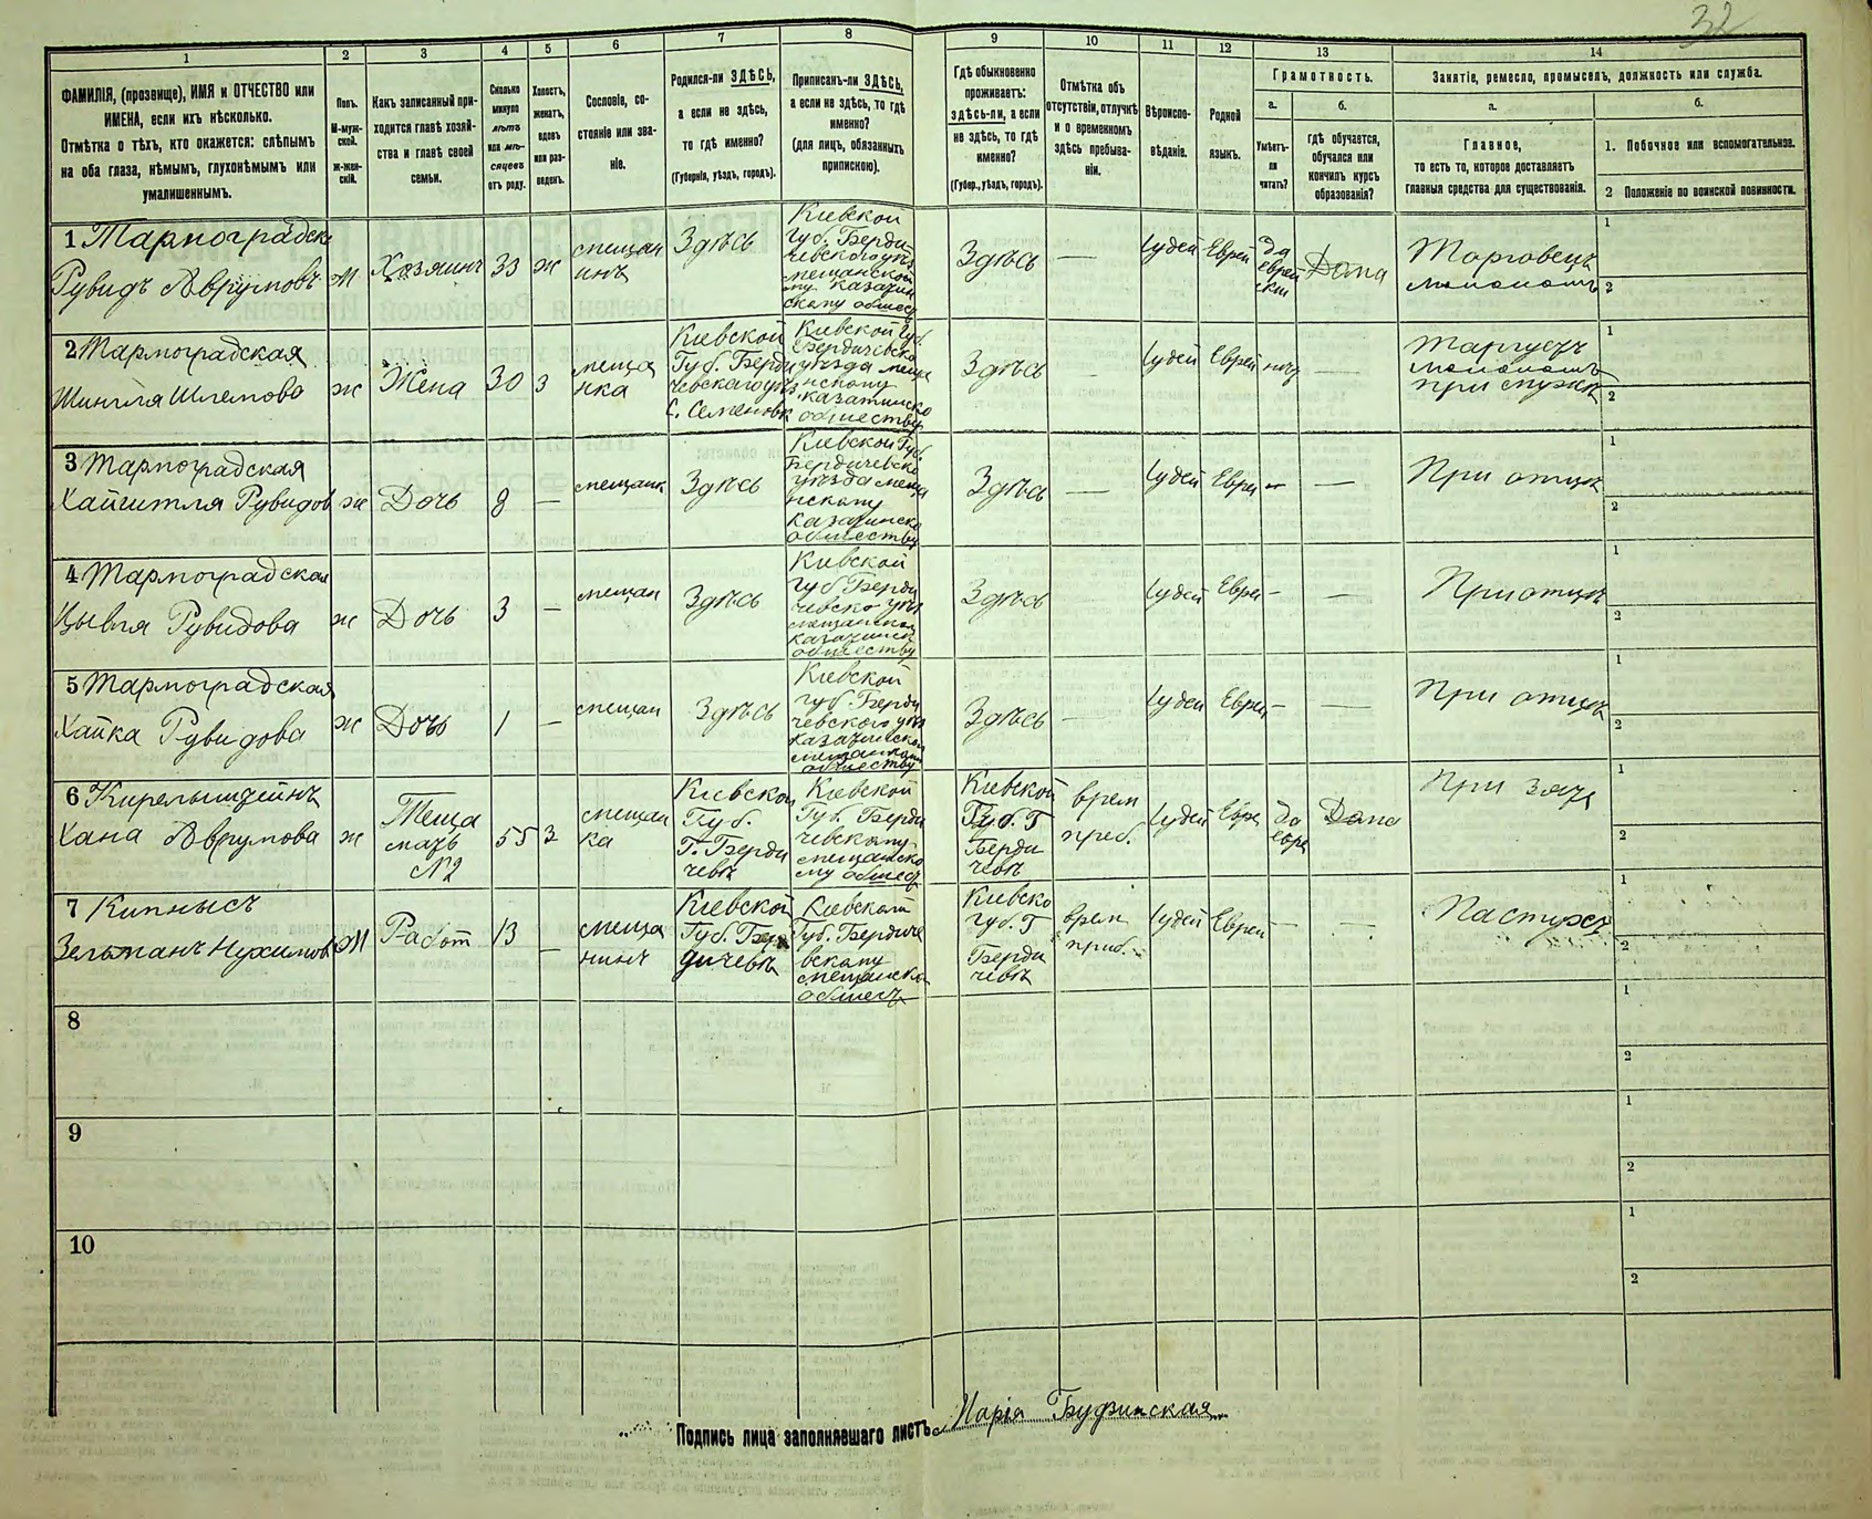 32
1
2
3
4
5
6
7
8
9
10
11
12
13
14
ФАМИЛІЯ, (прозвище), ИМЯ и ОТЧЕСТВО или
ИМЕНА, если ихъ нѣсколько.
Отмѣтка о тѣхъ, кто окажется: слѣпымъ
на оба глаза, нѣмымъ, глухонѣмымъ или
умалишеннымъ.
Полъ.
М-муж-
ской.
ж-жен-
скій.
Какъ записанный при-
ходится главѣ хозяй-
ства и главѣ своей
семьи.
Сколько
минуло
лѣтъ
или мѣ-
сяцевъ
отъ роду.
Холостъ,
женатъ,
вдовъ
или раз-
веденъ.
Сословіе, со-
стояніе или зва-
ніе.
Родился-ли ЗДѢСЬ,
а если не здѣсь,
то гдѣ именно?
(Губернія, уѣздъ, городъ).
Приписанъ-ли ЗДѢСЬ,
а если не здѣсь, то гдѣ
именно?
(для лицъ, обязанныхъ
припискою).
Гдѣ обыкновенно
проживаетъ:
здѣсь-ли, а если
не здѣсь, то гдѣ
именно?
(Губер., уѣздъ, городъ).
Отмѣтка объ
отсутствіи, отлучкѣ
и о временномъ
здѣсь пребыва-
ніи.
Вѣроиспо-
вѣданіе.
Родной
языкъ.
Грамотность.
а.
б.
Умѣетъ-
ли
читать?
Гдѣ обучается,
обучался или
кончилъ курсъ
образованія?
Занятіе, ремесло, промыселъ, должность или служба.
а.
б.
Главное,
то есть то, которое доставляетъ
главныя средства для существованія.
1. Побочное или вспомогательное.
2 Положеніе по воинской повинности.
1 Тарноградск
Рувидъ Аврумовъ
М
Хозяинъ
33
ж
мещан
инъ
Здѣсь
Кіевской
Губ. Берди
чевского уѣз
Здѣсь
—
Іудей
Еврей
да
еврей
ски
Дома
Торговецъ
1
2
2 Тарноградская
Шлемова
ж
Жена
30
З
меща
нка
Кіевской
Губ. Берди
чевского уѣз.
С. Семеновк
Кіевской Губ
Бердичевско
уѣзда меща
нскому
казатинско
обществу
Здѣсь
Іудей
Еврей
—
1
2
3 Тарноградская
Рувидов
ж
Дочь
8
—
мещанк
Здѣсь
Кіевской Губ
Бердичевско
уѣзда меща
нскому
казатинско
обществу
Здѣсь
—
Іудей
Еврей
—
—
При отцѣ
1
2
4 Тарноградская
Цывля Рувидова
ж
Дочь
3
—
мещан
Здѣсь
Кивской
губ Берди
Здѣсь
Іудей
Еврей
—
—
При отцѣ
1
2
5 Тарноградская
Хайка Рувидова
ж
Дочь
1
—
мещан
Здѣсь
Кіевской
губ Берди
чевского уѣз
Здѣсь
—
Іудей
Еврей
—
—
При отцѣ
1
2
6
Хана Аврумова
ж
Теща
мать
№2
55
З
мещан
ка
Кіевской
Губ.
Г. Берди
чевъ
Кіевской
Губ. Берди
чевскому
мещанско
му общес
Кіевской
Губ. Г
Берди
чевѣ
врем
преб.
Іудей
Евре
да
евре
Дома
При зятѣ
1
2
7 Кипнысъ
Зельманъ Нухимов
М
Работ
13
—
меща
нинъ
Кіевской
Губ. Бер
дичевѣ
Кіевской
Губ. Бердиче
вскому
мещанско
общесъ
Кіевско
губ. Г
Берди
чевѣ
врем
приб.
Іудей
Еврей
—
—
Пастухъ
1
2
8
1
2
9
1
2
10
1
2
Подпись лица заполнявшаго листъ
Марія